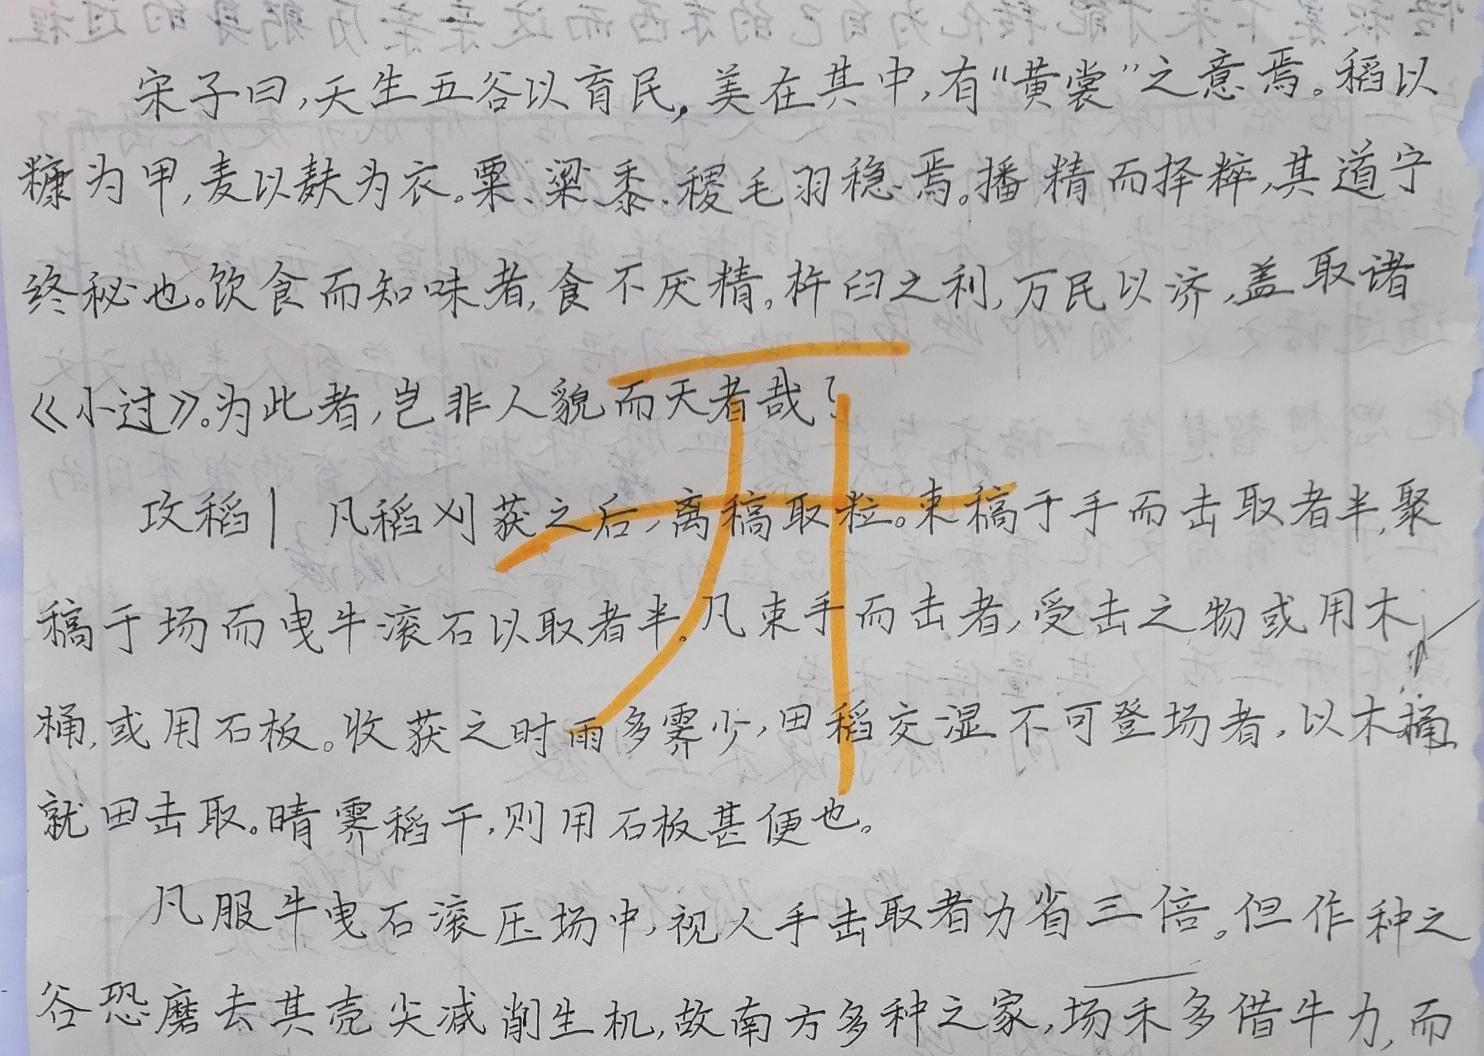 宋子曰,天生五谷以育民,美在其中,有“黄裳”之意焉。稻以
糠为甲,麦以麸为衣。粟、梁、黍、稷毛羽稳焉。播精而择粹,其道宁
终秘也。饮食而知味者,食不厌精。杵臼之利,万民以济,盖取诸
《小过》。为此者,岂非人貌而天者哉?
攻稻| 凡稻刈获之后,离稿取粒。束稿于手而击取者半,聚
稿于场而曳牛滚石以取者半。凡束手而击者,受击之物或用木
桶,或用石板。收获之时雨多霁少,田稻交湿不可登场者,以木桶
就田击取。晴霁稻干,则用石板甚便也。
凡服牛曳石滚压场中,视人手击取者力省三倍。但作种之
谷恐磨去其壳尖减削生机,故南方多种之家,场禾多借牛力,而